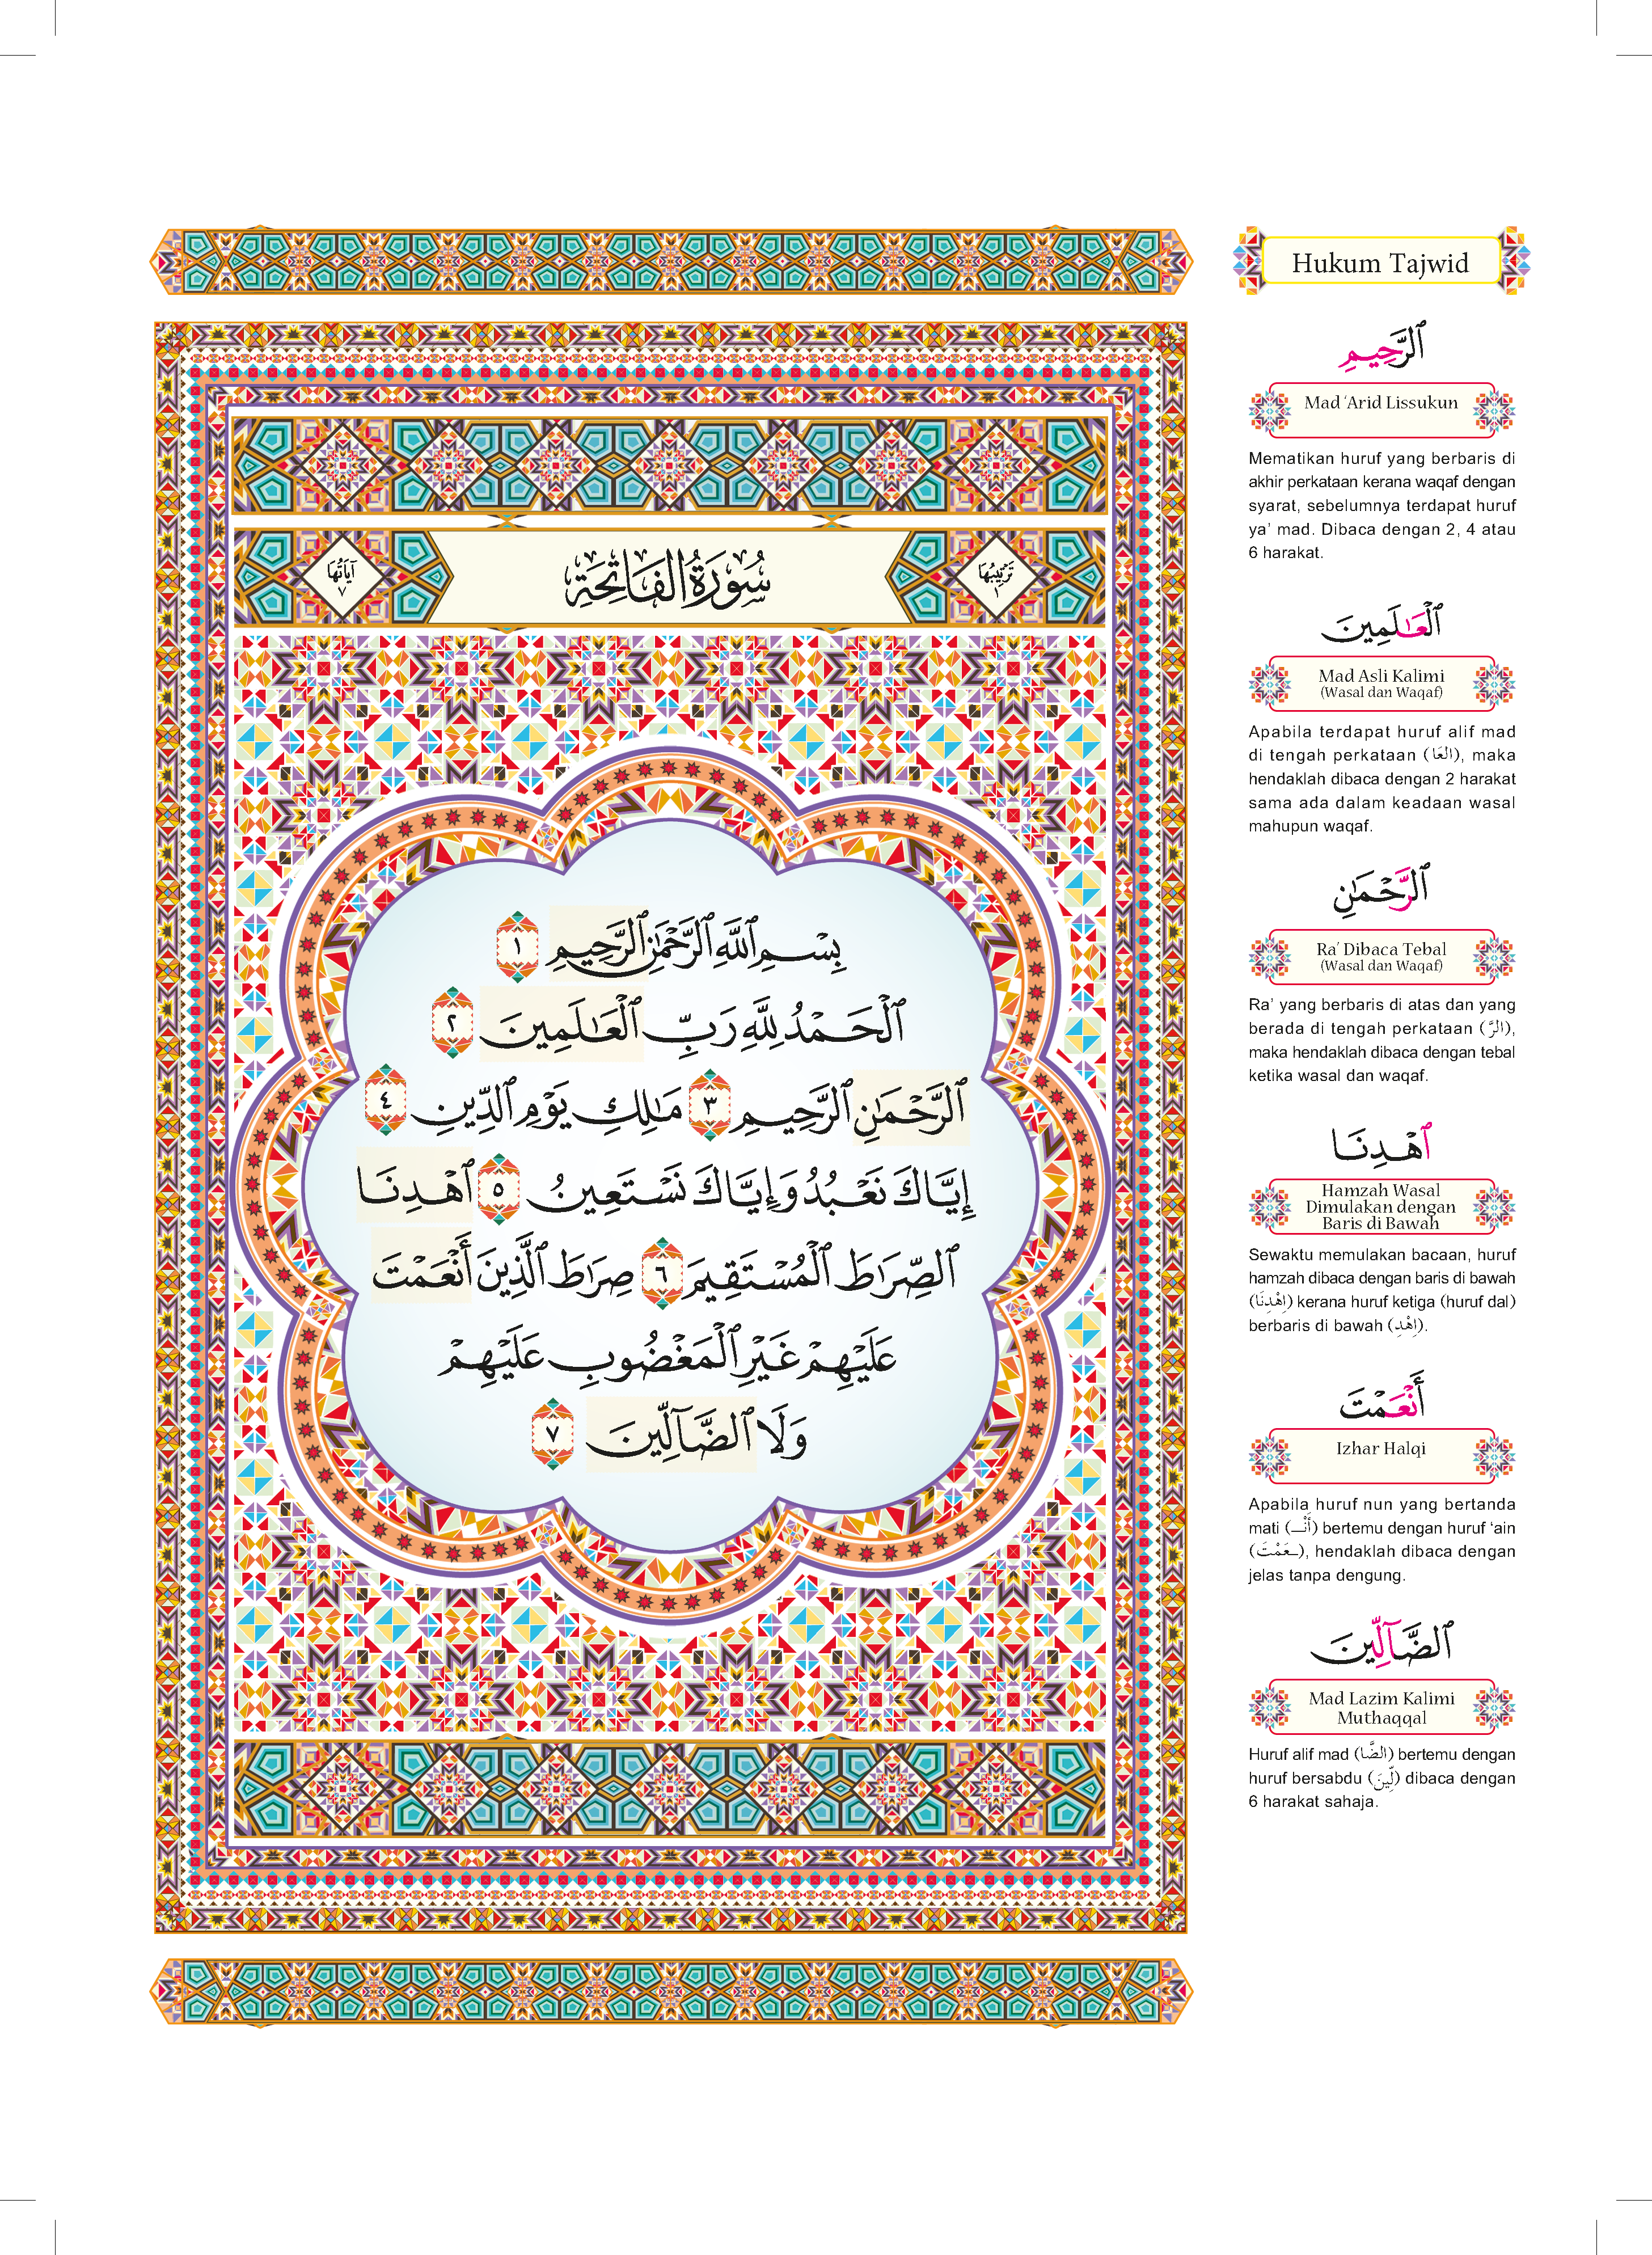 سُورَةُ الْفَاتِحَةِ
تَرْتِيبُهَا
١
آيَاتُهَا
٧
بِسْمِ ٱللَّهِ ٱلرَّحْمَٰنِ ٱلرَّحِيمِ ١
ٱلْحَمْدُ لِلَّهِ رَبِّ ٱلْعَٰلَمِينَ ٢
ٱلرَّحْمَٰنِ ٱلرَّحِيمِ ٣ مَٰلِكِ يَوْمِ ٱلدِّينِ ٤
إِيَّاكَ نَعْبُدُ وَإِيَّاكَ نَسْتَعِينُ ٥ ٱهْدِنَا
ٱلصِّرَٰطَ ٱلْمُسْتَقِيمَ ٦ صِرَٰطَ ٱلَّذِينَ أَنْعَمْتَ
عَلَيْهِمْ غَيْرِ ٱلْمَغْضُوبِ عَلَيْهِمْ
وَلَا ٱلضَّآلِّينَ ٧
Hukum Tajwid
ٱلرَّحِيمِ
Mad ‘Arid Lissukun
Mematikan huruf yang berbaris di
akhir perkataan kerana waqaf dengan
syarat, sebelumnya terdapat huruf
ya’ mad. Dibaca dengan 2, 4 atau
6 harakat.
ٱلْعَٰلَمِينَ
Mad Asli Kalimi
(Wasal dan Waqaf)
Apabila terdapat huruf alif mad
di tengah perkataan (العَا), maka
hendaklah dibaca dengan 2 harakat
sama ada dalam keadaan wasal
mahupun waqaf.
ٱلرَّحْمَٰنِ
Ra’ Dibaca Tebal
(Wasal dan Waqaf)
Ra’ yang berbaris di atas dan yang
berada di tengah perkataan (الرَّ),
maka hendaklah dibaca dengan tebal
ketika wasal dan waqaf.
ٱهْدِنَا
Hamzah Wasal
Dimulakan dengan
Baris di Bawah
Sewaktu memulakan bacaan, huruf
hamzah dibaca dengan baris di bawah
(اِهْدِنَا) kerana huruf ketiga (huruf dal)
berbaris di bawah (اِهْدِ).
أَنْعَمْتَ
Izhar Halqi
Apabila huruf nun yang bertanda
mati (أَنْـ) bertemu dengan huruf ‘ain
(ـعَمْتَ), hendaklah dibaca dengan
jelas tanpa dengung.
ٱلضَّآلِّينَ
Mad Lazim Kalimi
Muthaqqal
Huruf alif mad (الضَّا) bertemu dengan
huruf bersabdu (لِّينَ) dibaca dengan
6 harakat sahaja.